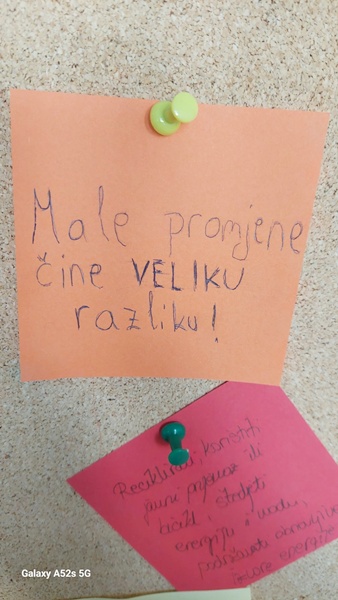 Male promjene
čine VELIKU
razliku!
Reciklirati, koristiti
javni prijevoz ili
bicikl, štedjeti
energiju i vodu,
podržavati obnovljive
izvore energije
Galaxy A52s 5G